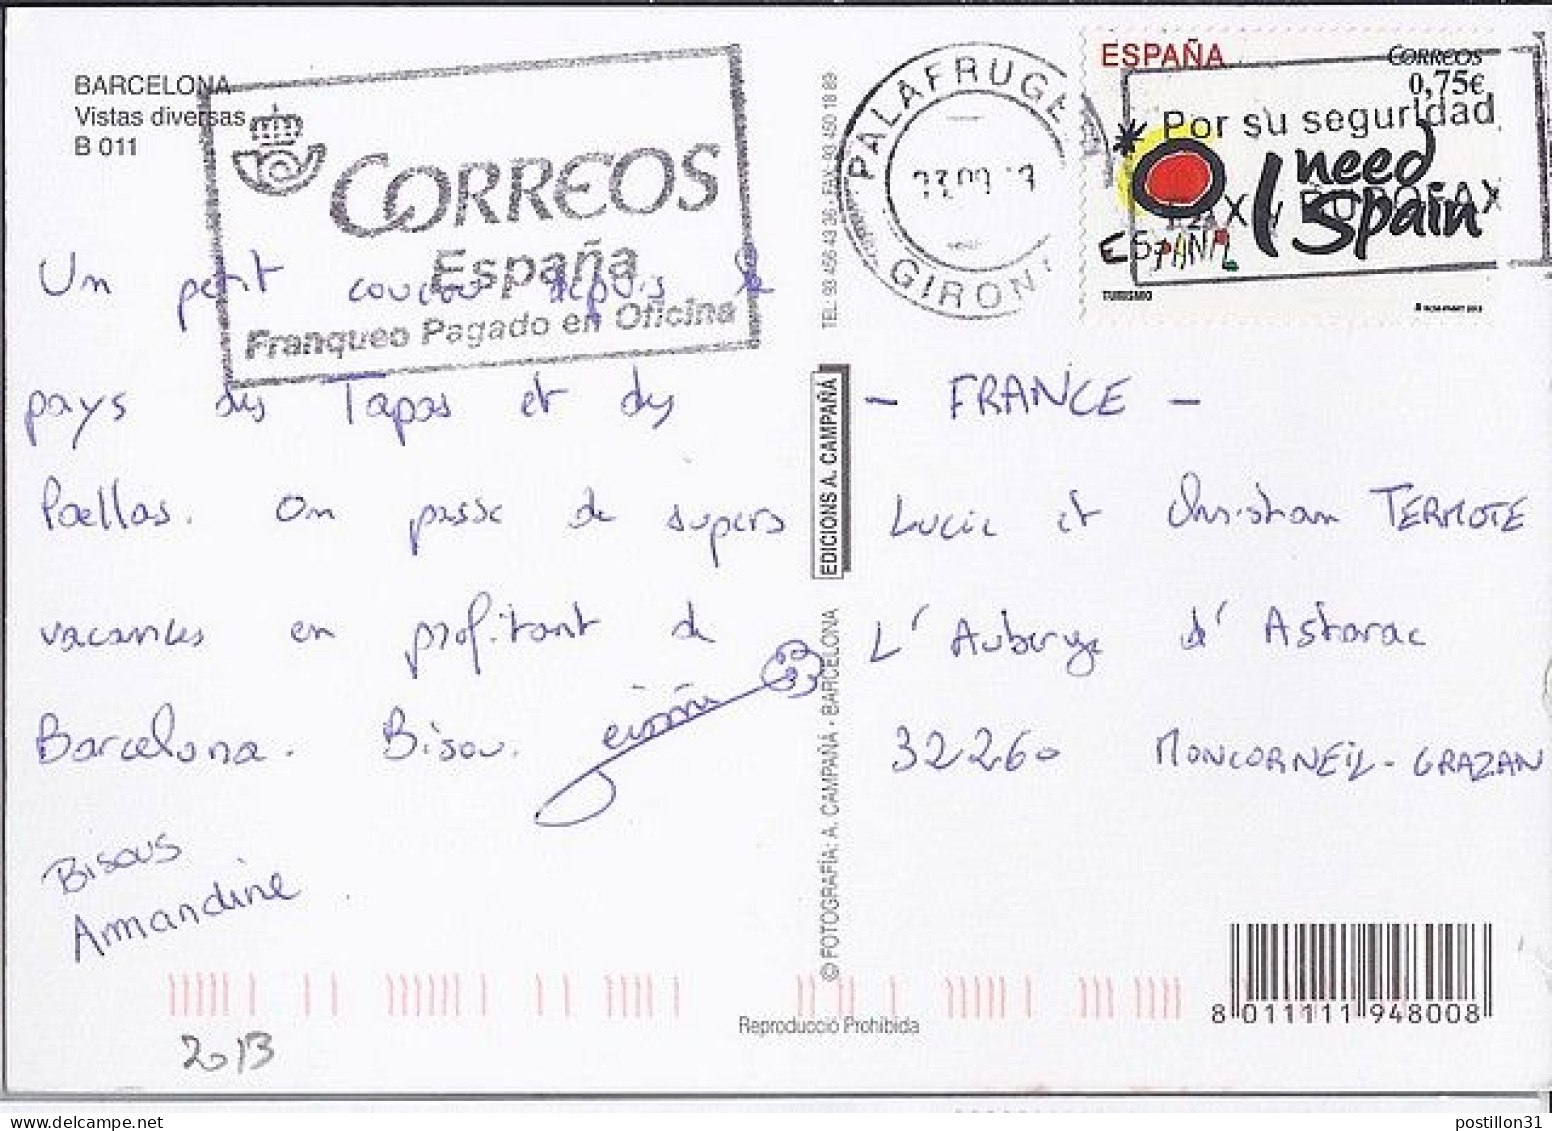 BARCELONA
Vistas diversas
B 011
CORREOS
España
Franqueo Pagado en Oficina
Un petit coucou depuis le
pays des Tapas et des
Paellas. On passe de supers
vacances en profitant de
Barcelona. Bisou.
Bisous
Amandine
2013
TEL: 93 456 43 36 - FAX: 93 450 18 89
EDICIONS A. CAMPAÑÁ
© FOTOGRAFÍA: A. CAMPAÑÁ - BARCELONA
Reproducció Prohibida
PALAFRUGE
GIRON
ESPAÑA
CORREOS
0,75€
Por su seguridad
I need
Spain
ESPAÑA
TURISMO
- FRANCE -
Lucie et Christian TERMOTE
L'Auberge d'Astarac
32260 MONCORNEIL-GRAZAN
8 011111 948008
postillon31